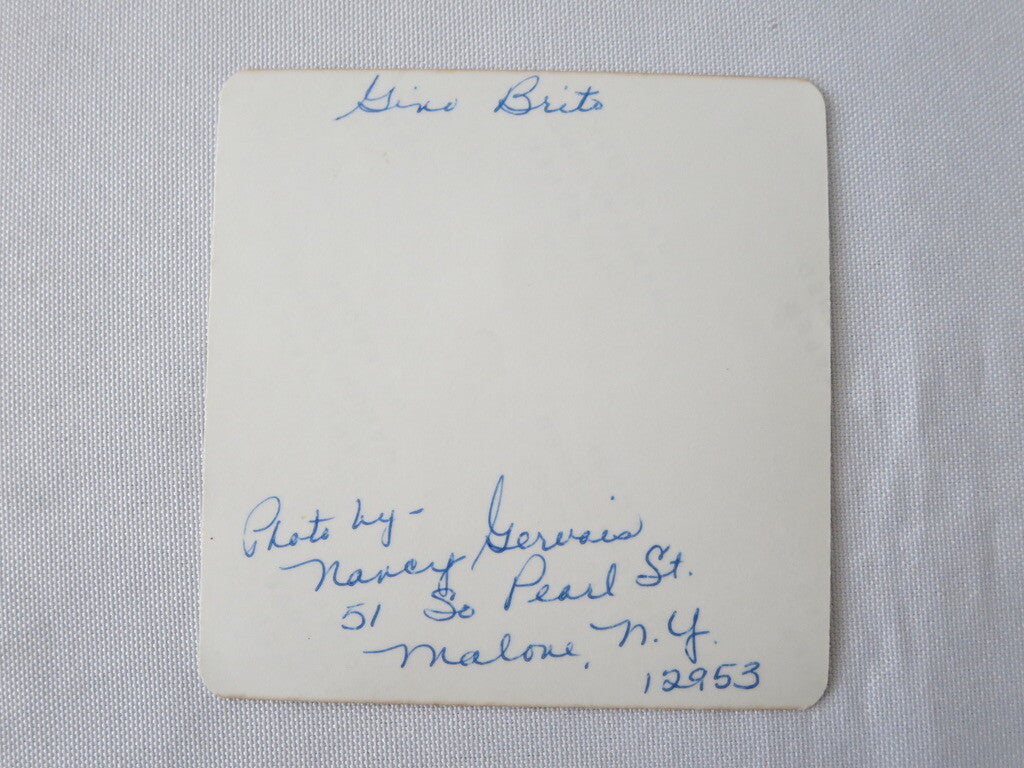 Gino Brito
Photo by-
Nancy Gervais
51 So Pearl St.
Malone, N.Y.
12953